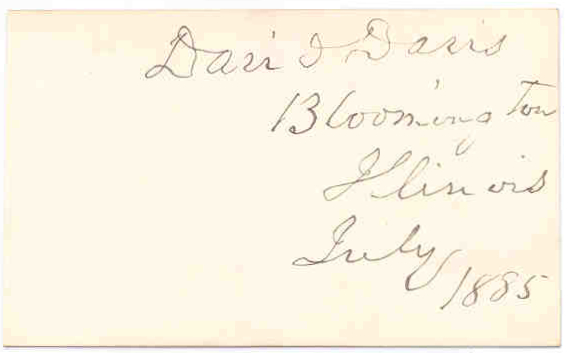 David Davis
Bloomington
Illinois
July
1885